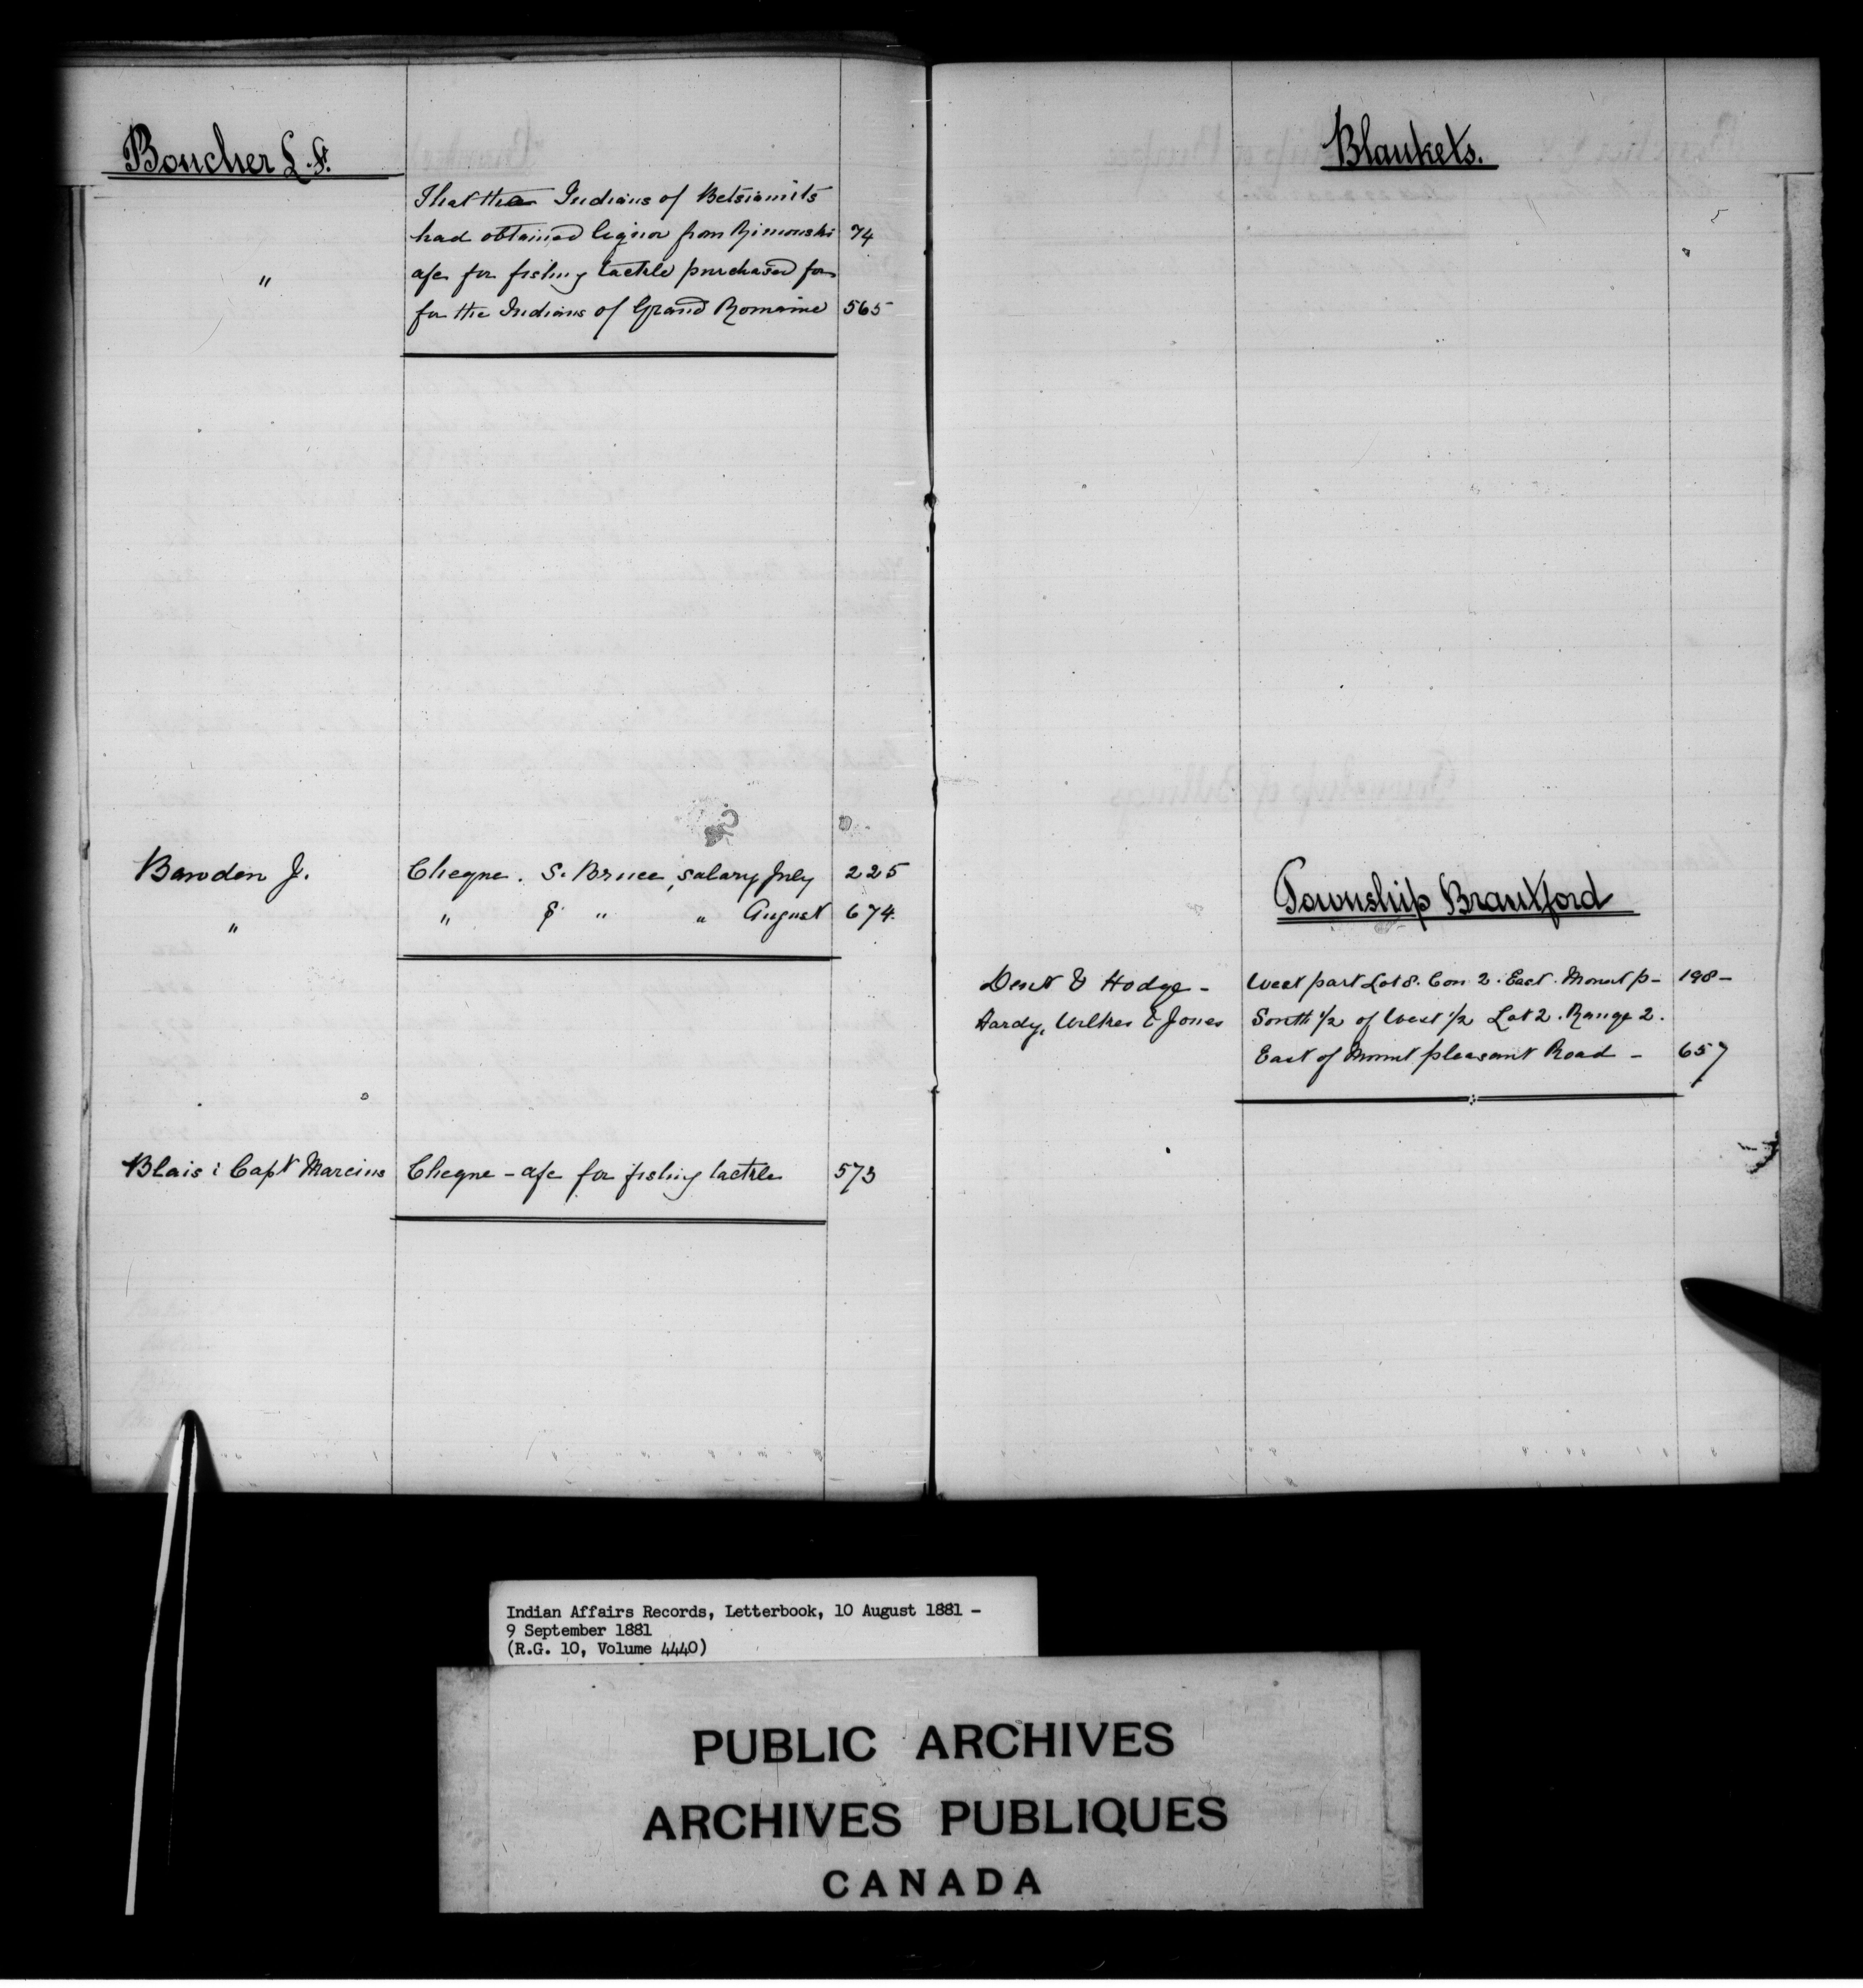 Boucher L. F.
That the Indians of Betsiamits
had obtained liquor from Rimouski 74
" a/c for fishing tackle purchased for
for the Indians of Grand Romaine 565
Bawden J. Cheque. S. Bruce, salary July 225
" " S " " August 674.
Blais : Capt Marcius Cheque - a/c for fishing tackle 573
Blankets.
Township Brantford
Dent & Hodge - West part Lot 8. Con 2. East. Mount p- 198-
Hardy, Wilkes & Jones South 1/2 of West 1/2 Lot 2. Range 2.
East of Mount pleasant Road - 657
Indian Affairs Records, Letterbook, 10 August 1881 -
9 September 1881
(R.G. 10, Volume 4440)
PUBLIC ARCHIVES
ARCHIVES PUBLIQUES
CANADA